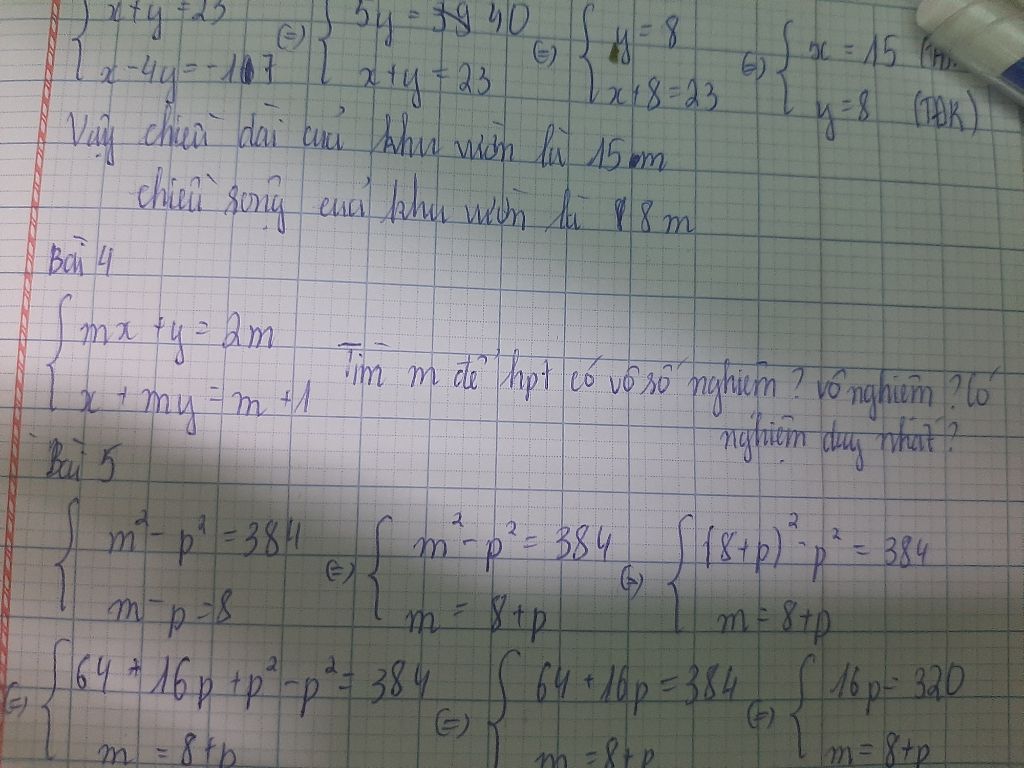 x + y = 23 (=) 5y = 40 (=) y = 8 (=) x = 15
x - 4y = -17 x + y = 23 x + 8 = 23 y = 8 (TĐK)
Vậy chiều dài của khu vườn là 15 m
chiều rộng của khu vườn là 8 m
Bài 4
mx + y = 2m
x + my = m + 1 Tìm m để hpt có vô số nghiệm? vô nghiệm? Có
nghiệm duy nhất?
Bài 5
m² - p² = 384 (=) m² - p² = 384 (=) (8+p)² - p² = 384
m - p = 8 m = 8 + p m = 8 + p
(=) 64 + 16p + p² - p² = 384 (=) 64 + 16p = 384 (=) 16p = 320
m = 8 + p m = 8 + p m = 8 + p